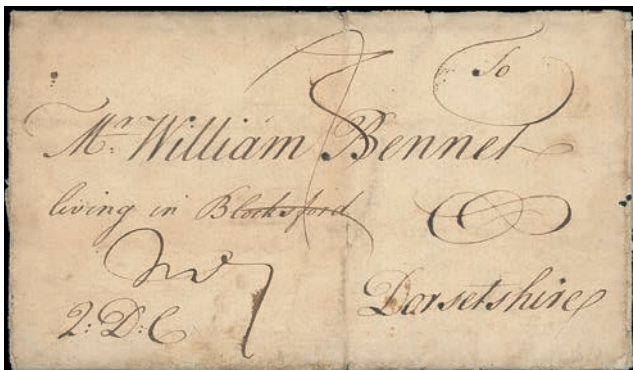 To
Mr: William Bennet
living in Blocksford
Dorsetshire
2: D: C